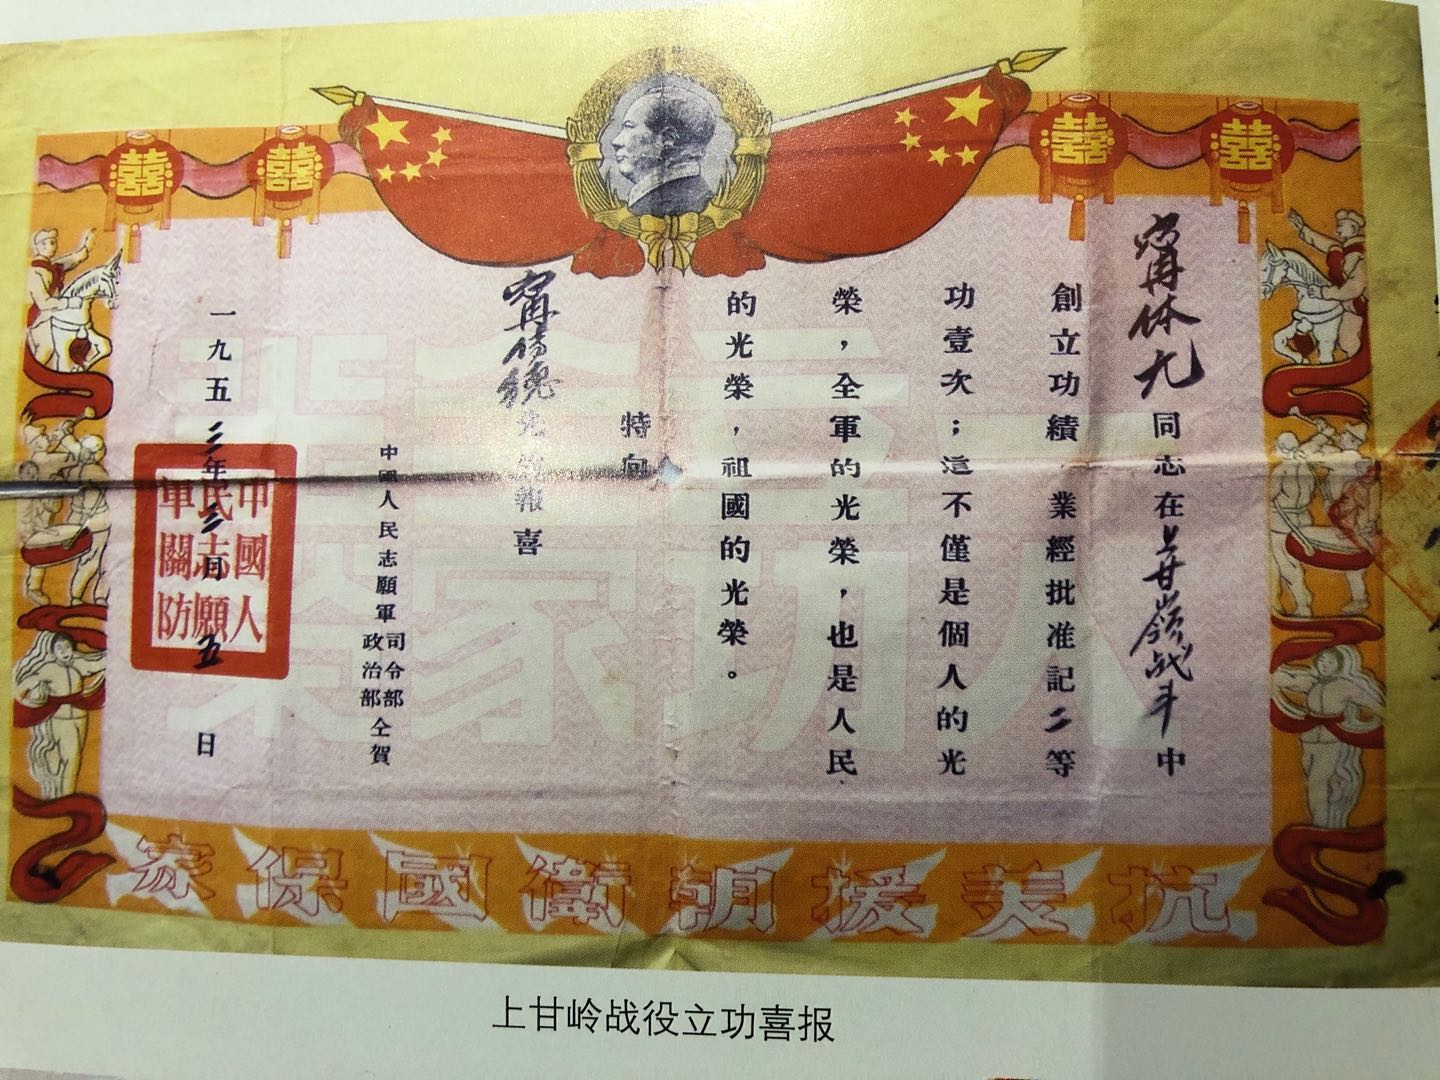 囍 囍 囍 囍
甯休九同志在上甘嶺战斗中
創立功績，業經批准記二等
功壹次；這不僅是個人的光
榮，全軍的光榮，也是人民
的光榮，祖國的光榮。
特向
報喜
中國人民志願軍
司令部
政治部
仝賀
一九五三年三月五日
中國人
民志願
軍關防
抗美援朝衛國保家
上甘岭战役立功喜报